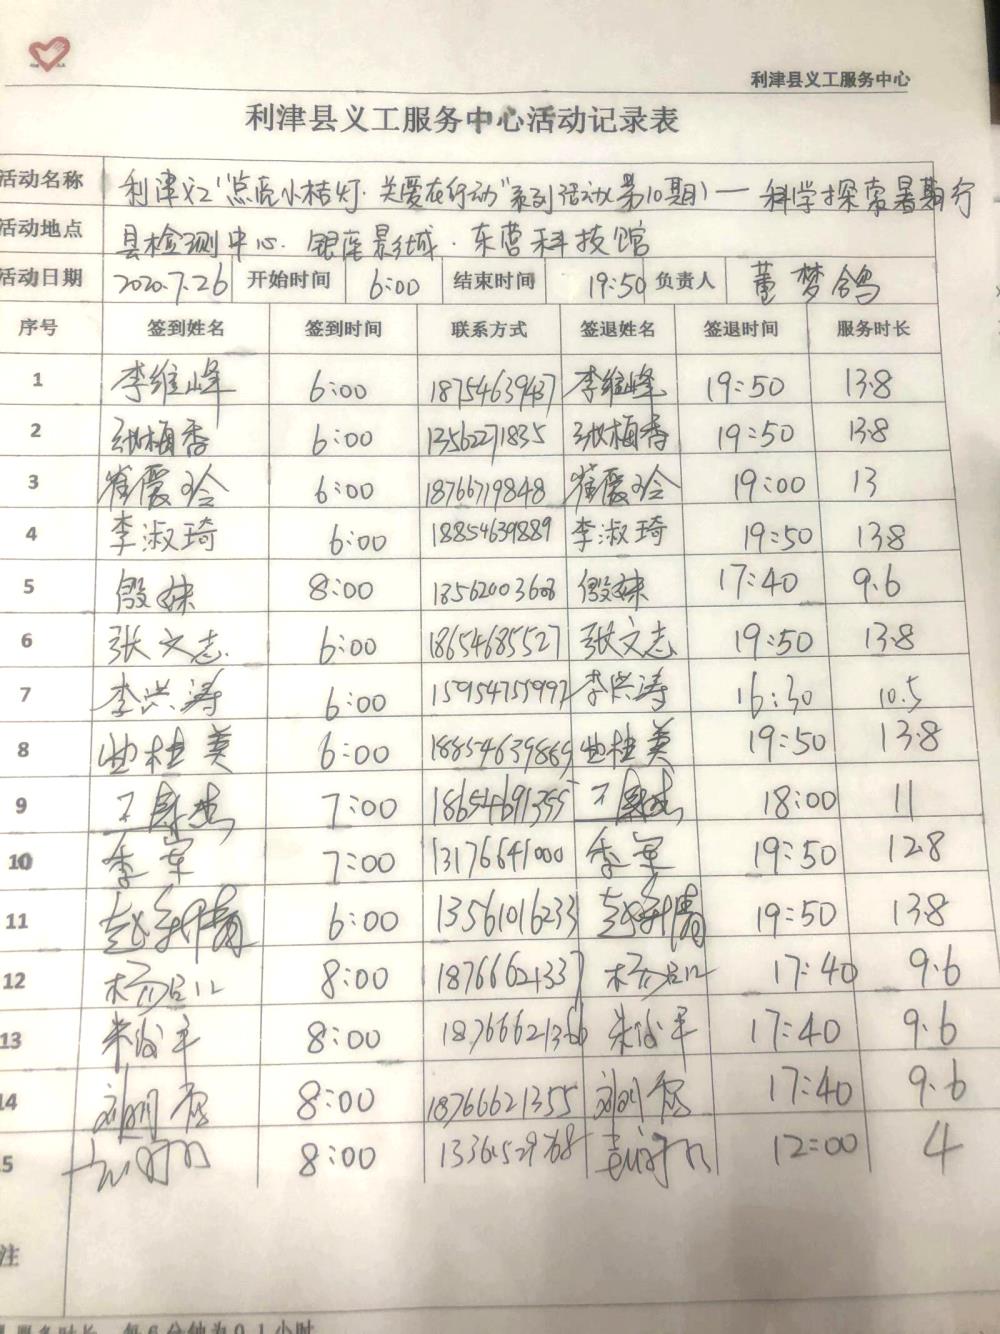 利津县义工服务中心
利津县义工服务中心活动记录表
活动名称 利津义工"点亮小桔灯·关爱在行动"系列活动(第10期)—科学探索暑期行
活动地点 县检测中心.银座影城.东营科技馆
活动日期 2020.7.26 开始时间 6:00 结束时间 19:50 负责人 董梦鸽
序号 签到姓名 签到时间 联系方式 签退姓名 签退时间 服务时长
1 李维峰 6:00 18754639437 李维峰 19:50 13.8
2 张梅香 6:00 13562271835 张梅香 19:50 13.8
3 崔 6:00 18766719848 崔 19:00 13
4 李淑琦 6:00 18854639889 李淑琦 19:50 13.8
5 殷妹 8:00 13562003608 殷妹 17:40 9.6
6 张文志 6:00 18654685527 张文志 19:50 13.8
7 李洪涛 6:00 15954755997 李洪涛 16:30 10.5
8 曲桂美 6:00 18854639869 曲桂美 19:50 13.8
9 7:00 18654691355 18:00 11
10 李军 7:00 13176641000 李军 19:50 12.8
11 赵 6:00 13561016233 赵 19:50 13.8
12 杨 8:00 18766621337 杨 17:40 9.6
13 朱俊平 8:00 18766621366 朱俊平 17:40 9.6
14 8:00 18766621355 17:40 9.6
5 8:00 12:00 4
注
服务时长 每6分钟为0.1小时